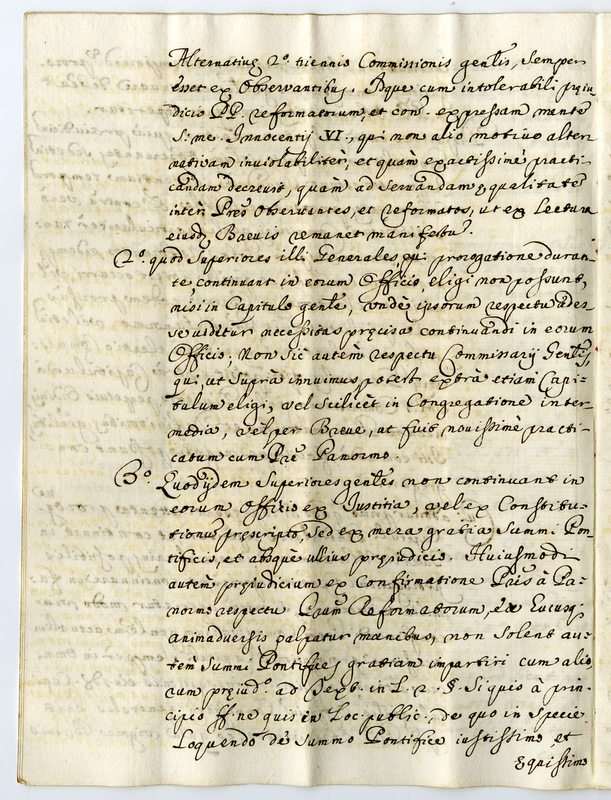 Alternatiuę 2.º triennis Commissionis gen͠lis, Semper
esset ex Obseruantibus. Idque cum intolerabili pręiu-
dicio PP. reformatorum, et con. expressam mentē
S: me. Innocentij XI., qui non alio motiuo alter
natiuam inuiolabilitèr, et quàm exactissimè practi-
candam decreuit, quàm ad seruandam ęqualitatē
intèr Pres Obseruantes, et reformatos, ut ex Lectura
eiusd. Breuis remanet manifestū.
2.º quod Superiores illi Generales, qui prorogatione duran-
te continuant in eorum Officio, eligi non possunt,
nisi in Capitulo gen͠le, undè ipsorum respectu ades
se uidetur necessitas pręcisa continuandi in eorum
Officio; Non sic autèm respectu Commissarij Gen͠lis,
qui, ut suprà innuimus potest extrà etiam Capi-
tulum eligi, uel scilicèt in Congregatione inter-
media, uèl per Breue, ut fuit nouissimè practi-
catum cum Pre Panormo.
3.º Quod ijdem Superiores gen͠les non continuant in
eorum Officio ex Iustitia, uel ex Constitu-
tionum pręscripto, sed ex mera gratia Summi Pon-
tificis, et absquè ullius pręiudicio. Huiusmodi
autèm pręiudicium ex Confirmatione Pris à Pa-
normo respectu Prum Reformatorum, ex hucusq;
animaduersis palpatur manibus, non solent au-
tèm Summi Pontifices gratiam impartiri cum alio
rum pręiud.º ad Text. in L. 2. §. Si quis à prin-
cipio ff. ne quis in Loc. public. de quo in specie
Loquendo de Summo Pontifice iustissimo, et
ęquissimo